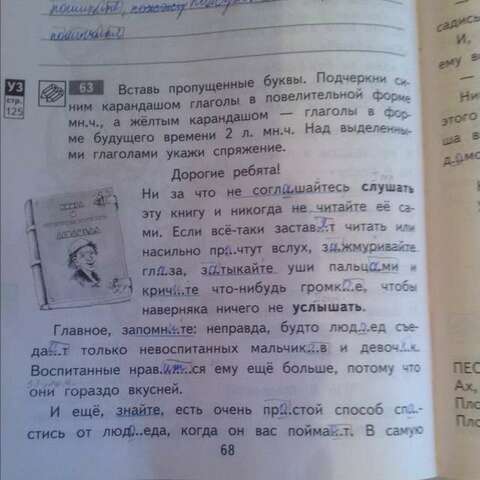 УЗ
стр.
125
63 Вставь пропущенные буквы. Подчеркни си-
ним карандашом глаголы в повелительной форме
мн.ч., а жёлтым карандашом — глаголы в фор-
ме будущего времени 2 л. мн.ч. Над выделенны-
ми глаголами укажи спряжение.
Дорогие ребята!
Ни за что не соглашайтесь слушать
эту книгу и никогда не читайте её са-
ми. Если всё-таки застав..т читать или
насильно пр..чтут вслух, зажмуривайте
глаза, затыкайте уши пальцами и
крич..те что-нибудь громк..е, чтобы
наверняка ничего не услышать.
Главное, запомн..те: неправда, будто люд..ед съе-
да..т только невоспитанных мальчик..в и девоч..к.
Воспитанные нрав..ся ему ещё больше, потому что
они гораздо вкусней.
И ещё, знайте, есть очень пр..стой способ сп..-
стись от люд..еда, когда он вас пойма..т. В самую
68
садись
И,
ему в
Ни
этого
ша в
ПЕС
Ах,
Пло
Пло